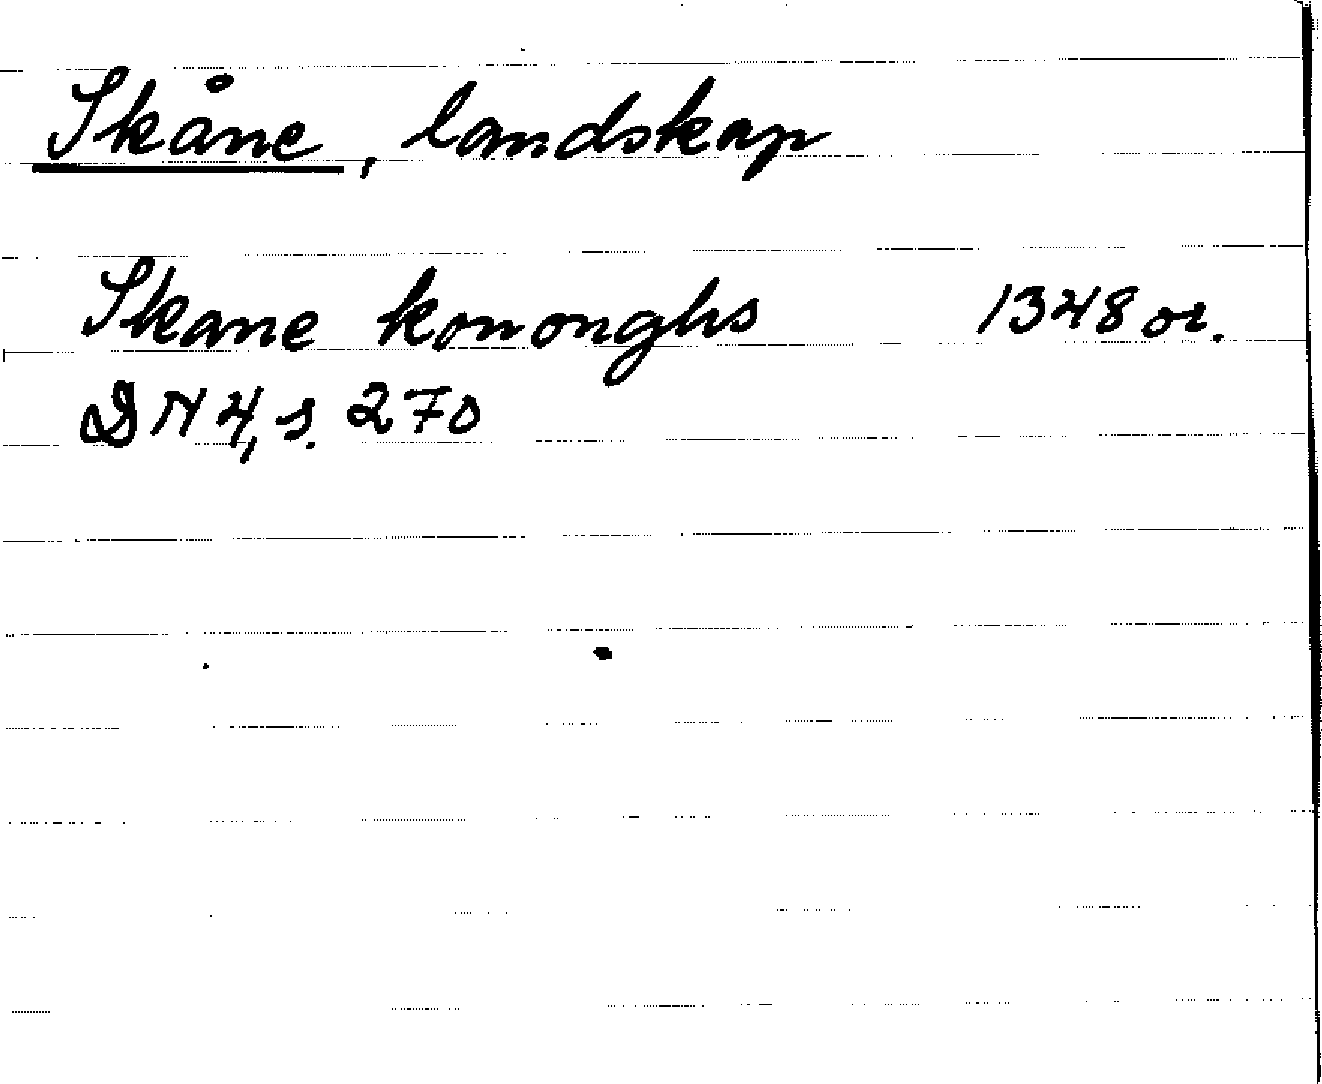 Skåne, landskap
Skane kononghs 1348 or.
DN 4, s. 270